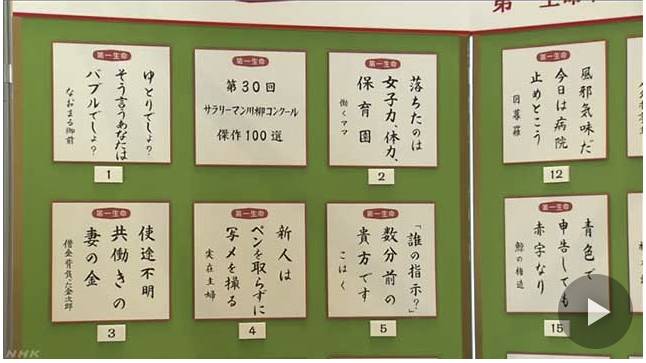 第一生命
ゆとりでしょ？
そう言うあなたは
バブルでしょ？
なおまる御前
1
第一生命
第30回
サラリーマン川柳コンクール
傑作100選
第一生命
落ちたのは
女子力、体力、
保育園
働くママ
2
第一生命
使途不明
共働きの
妻の金
借金背負った金次郎
3
第一生命
新人は
ペンを取らずに
写メを撮る
実在主婦
4
第一生命
「誰の指示？」
数分前の
貴方です
こはく
5
第一生命
風邪気味だ
今日は病院
止めとこう
12
第一生命
青色で
申告しても
赤字なり
鯨の指造
15
NHK